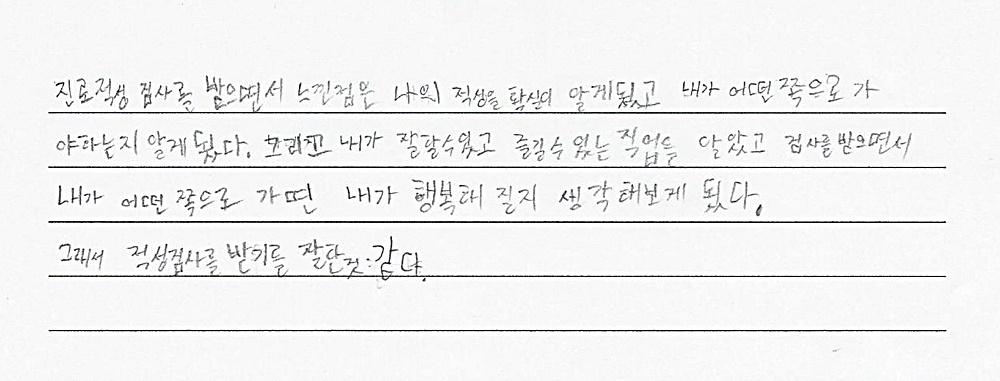 진로적성 검사를 받으면서 느낀점은 나의 적성을 확실히 알게됐고 내가 어떤 쪽으로 가
야하는지 알게 됐다. 그리고 내가 잘할수있고 즐길수 있는 직업을 알았고 검사를 받으면서
내가 어떤 쪽으로 가면 내가 행복해 질지 생각해보게 됐다.
그래서 적성검사를 받기를 잘한것 같다.